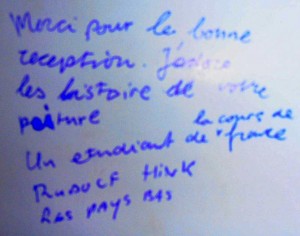 Merci pour la bonne
reception. J'adore
les histoire de votre
peiture
la cours de
Un etudiant de france
RUDOLF HINK
Les PAYS BAS